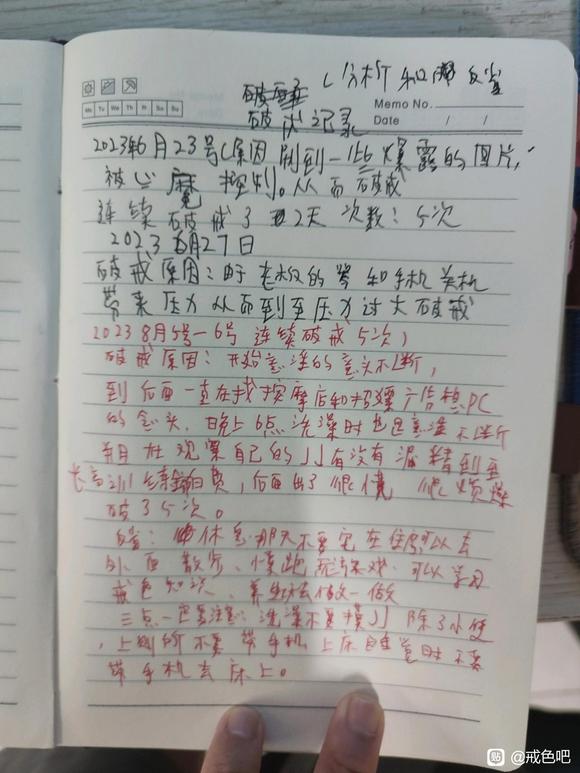 (分析和反省
破戒
Memo No.
Mo Tu We Th Fr Sa Su
破戒记录
Date / /
2023年6月23号(原因刷到一些爆露的图片,
被心魔控制。从而破戒
连续破戒了2天 次数:5次
2023 6月27日
破戒原因:由于老板的骂和手机关机
带来压力从而到至压力过大破戒
2023 8月5号一6号 连续破戒5次,
破戒原因:开始意淫的意头不断,
到后面一直在找按摩店和招嫖广告想PC
的念头,晚上6点洗澡时也是意淫不断
并且在观察自己的JJ有没有漏精到至
,后面出了很慌 很烦燥
破了5次。
反省:休息那天不要宅在住房可以去
外面散步、慢跑 可以学习
戒色知识、养生法做一做
三点一定要注意:洗澡不要摸JJ 除了小便
,上厕所不要带手机 上床睡觉时不要
带手机去床上。
贴 @戒色吧